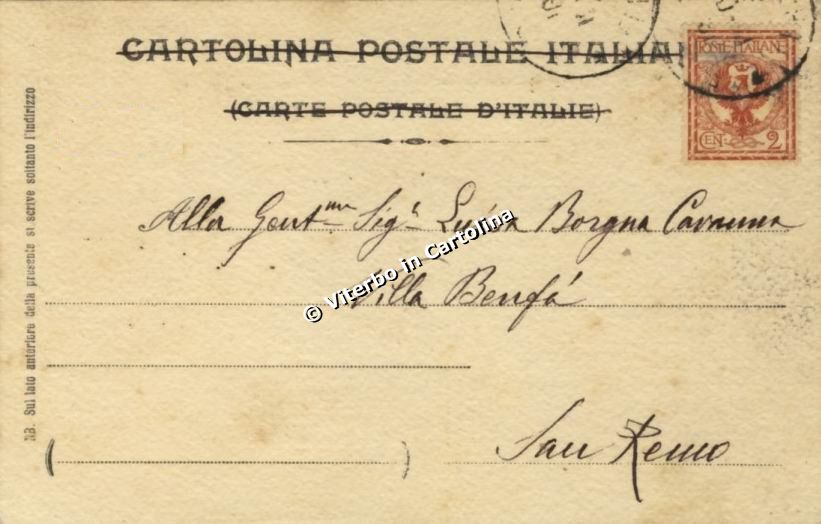 CARTOLINA POSTALE ITALIA
(CARTE POSTALE D'ITALIE)
POSTE ITALIANE
CENT 2
NB. Sul lato anteriore della presente si scrive soltanto l'indirizzo
Alla Gent.ma Sig.a Luisa Borgna Cavanna
Villa Benfà
San Remo
© Viterbo in Cartolina